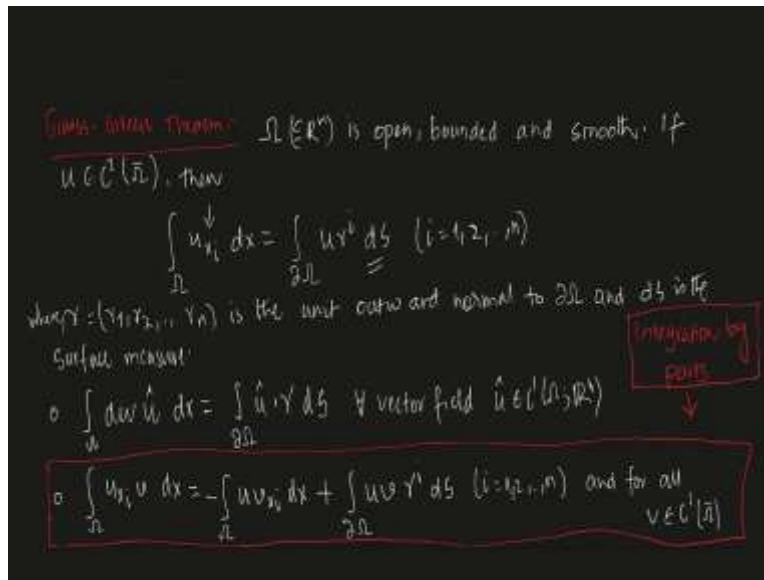 Gauss-Green Theorem: Ω (⊆ ℝⁿ) is open, bounded and smooth. If
u ∈ C¹(Ω̄), then
↓
∫_Ω u_{x_i} dx = ∫_{∂Ω} u γⁱ dS (i=1,2,..,n)
where, γ = (γ₁, γ₂, .., γₙ) is the unit outward normal to ∂Ω and dS is the
surface measure.
Integration by
parts
↓
o ∫_Ω div û dx = ∫_{∂Ω} û · γ dS ∀ vector field û ∈ C¹(Ω; ℝⁿ)
o ∫_Ω u_{x_i} v dx = - ∫_Ω u v_{x_i} dx + ∫_{∂Ω} u v γⁱ dS (i=1,2,..,n) and for all
v ∈ C¹(Ω̄)